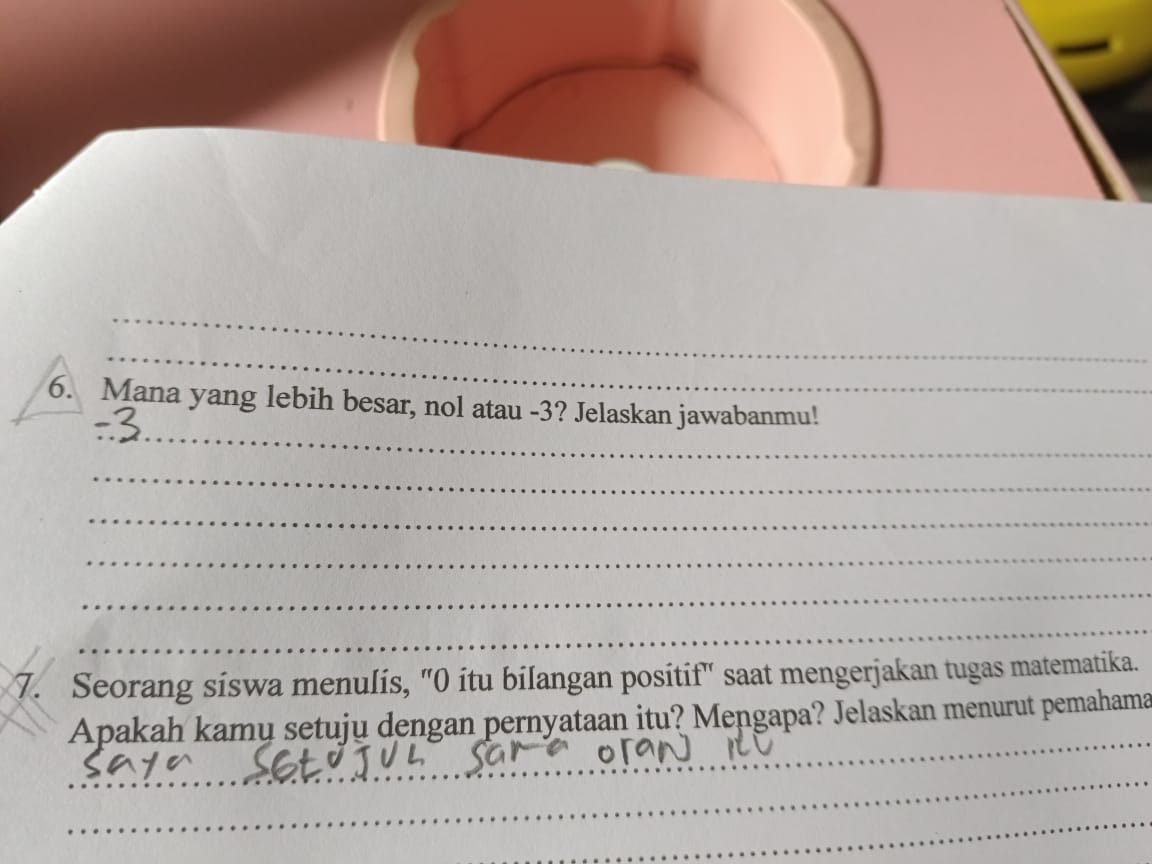 6. Mana yang lebih besar, nol atau -3? Jelaskan jawabanmu!
-3
7. Seorang siswa menulis, "0 itu bilangan positif" saat mengerjakan tugas matematika.
Apakah kamu setuju dengan pernyataan itu? Mengapa? Jelaskan menurut pemahama
saya setujuh sama oran itu